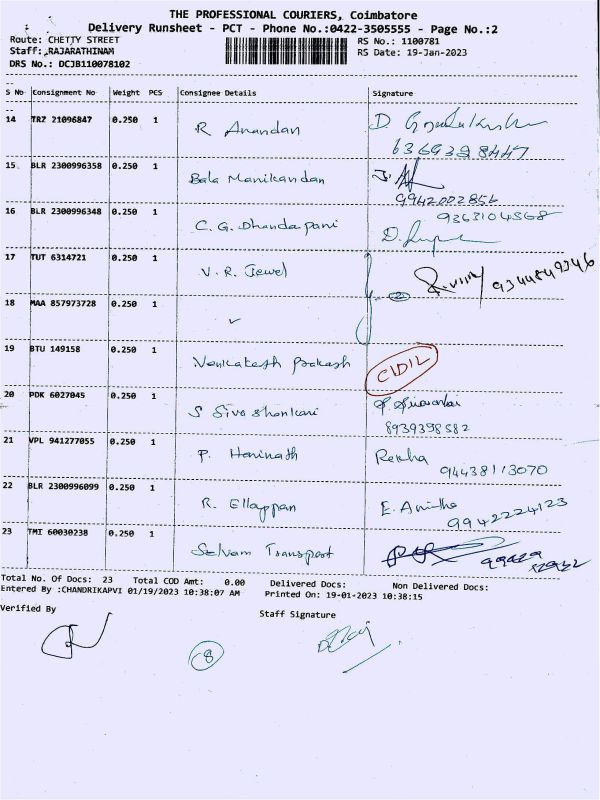 THE PROFESSIONAL COURIERS, Coimbatore
Delivery Runsheet - PCT - Phone No.:0422-3505555 - Page No.:2
Route: CHETTY STREET RS No.: 1100781
Staff: RAJARATHINAM RS Date: 19-Jan-2023
DRS No.: DCJB110078102
S No Consignment No Weight PCS Consignee Details Signature
14 TRZ 21096847 0.250 1 R Anandan
6369328447
15 BLR 2300996358 0.250 1 Bala Manikandan
9942002856
16 BLR 2300996348 0.250 1 C. G. Dhandapani 9363104568
17 TUT 6314721 0.250 1 V. R. Jewel 9344849346
18 MAA 857973728 0.250 1
19 BTU 149158 0.250 1 Venkatesh Prakash
20 PDK 6027045 0.250 1 S Siva Shankari
8939398582
21 VPL 941277055 0.250 1 P. Harinath Rekha
9443811 3070
22 BLR 2300996099 0.250 1 R. Ellappan E. Anitha
9942224123
23 TMI 60030238 0.250 1 Selvam Transport
Total No. Of Docs: 23 Total COD Amt: 0.00 Delivered Docs: Non Delivered Docs:
Entered By :CHANDRIKAPVI 01/19/2023 10:38:07 AM Printed On: 19-01-2023 10:38:15
Verified By Staff Signature
8